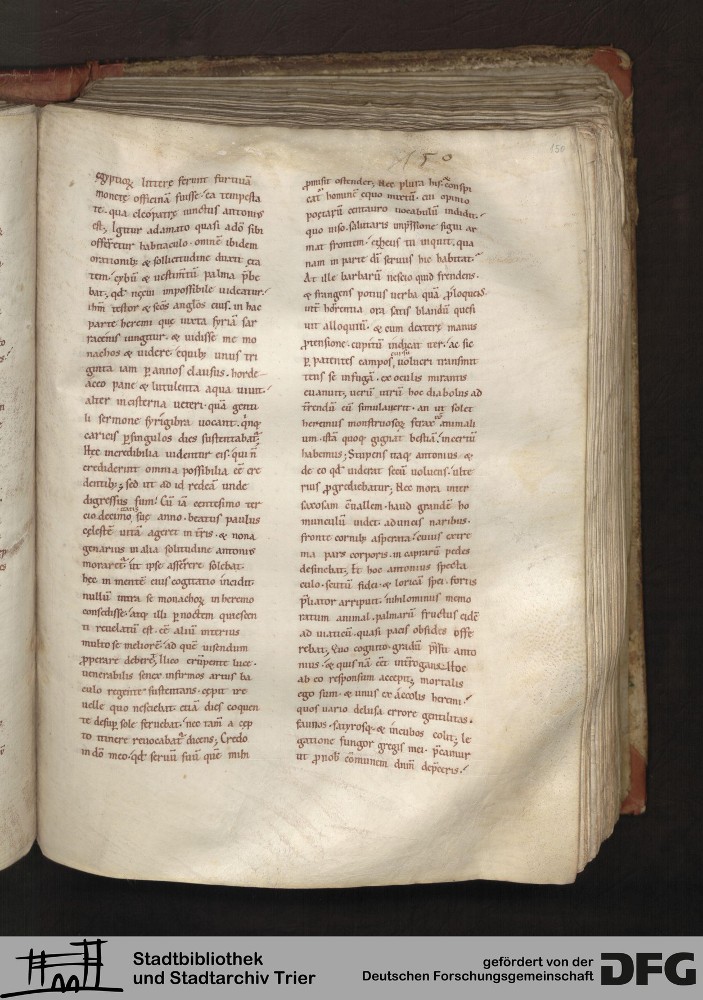 150
150
egyptioꝝ litterę ferunt furtiuā
monetę officinā fuisse. ea tempesta
te. qua cleopatrę iunctus antonius
est; Igitur adamato quasi adō sibi
offerretur habitaculo. omnē ibidem
orationib; & sollicitudine duxit ęta
tem. cybū & uestim̄tū palma p̄be
bat. qd̄ nęcui impossibile uideatur.
ihm̄ testor & sc̄os anglos eius. in hac
parte heremi quę iuxta syriā sar
racenis iungitur. & uidisse me mo
nachos & uidere. equib; unus tri
ginta iam p annos clausus. horde
aceo pane & lutulenta aqua uiuit.
alter in cisterna ueteri. quā genti
li sermone syri gibra uocant. q̇nq;
caricis p singulos dies sustentabat̄.
Hęc incredibilia uidentur eis. qui n̄
crediderint omnia possibilia eē cre
dentib; sed ut ad id redeā unde
digressus sum; Cū iā centesimo ter
cio decimo suę anno. beatus paulus
cęlestē uitā ageret in t̄ris. & nona
genarius in alia solitudine antonius
moraret̄. ut ipse asserere solebat.
hęc in mentē eius cogitatio incidit.
nullū intra se monachoꝝ in heremo
consedisse. atq; illi p noctem quiescen
ti reuelatū est. eē aliū interius
multo se meliorē. ad quē uisendum
p̱perare deberet; Ilico erūpente luce.
uenerabilis senex infirmos artus ba
culo regente sustentans. cępit ire
uelle quo nesciebat. etiā dies coquen
te desup sole feruebat. nec tam̄ a cęp
to itinere reuocabat̄ dicens; Credo
in dō meo. qd̄ seruū suū quē mihi
p̱misit ostendet; Nec plura his. conspi
cat̄ hominē equo mixtū. cui opinio
poętarū centauro uocabulū indidit.
quo uiso. salutaris imp̄ssione signi ar
mat frontem. & heus tu inquit. qua
nam in parte dī seruus hic habitat.
At ille barbarū nescio quid frendens.
& frangens potius uerba quā p̱loquens.
int̄ horrentia ora satis blandū quesi
uit alloquiū. & cum dexterę manus
p̱tensione. cupitū indicat iter. ac sic
p patentes campos uolucri transmit
tens se in fugā. ex oculis mirantis
euanuit; uerū utrū hoc diabolus ad
t̄rendū eū simulauerit. an ut solet
heremus monstruosoꝝ ferax animali
um. istā quoq; gignat bestiā. incertū
habemus; Stupens itaq; antonius. &
de eo qd̄ uiderat secū uoluens. ulte
rius p̱grediebatur; Nec mora inter
saxosam cōuallem. haud grandē ho
munculū uidet. aduncis naribus.
fronte cornib; asperata. cuius extre
ma pars corporis. in caprarū pedes
desinebat; Et hoc antonius specta
culo. scutū fidei. & loricā spei. fortis
p̄liator arripuit. nihilominus memo
ratum animal. palmarū fructus eidē
ad uiaticū. quasi pacis obsides offe
rebat; Quo cognito. gradū p̄ssit anto
nius. & quisnā eēt int̄rogans; Hoc
ab eo responsum accepit; mortalis
ego sum. & unus ex accolis heremi.
quos uario delusa errore gentilitas.
faunos. satyrosq;. & incubos colit; le
gatione fungor gregis mei. p̄camur
ut p̱ nob̄ cōmunem dnm̄ depceris.
Stadtbibliothek
und Stadtarchiv Trier
gefördert von der
Deutschen Forschungsgemeinschaft
DFG